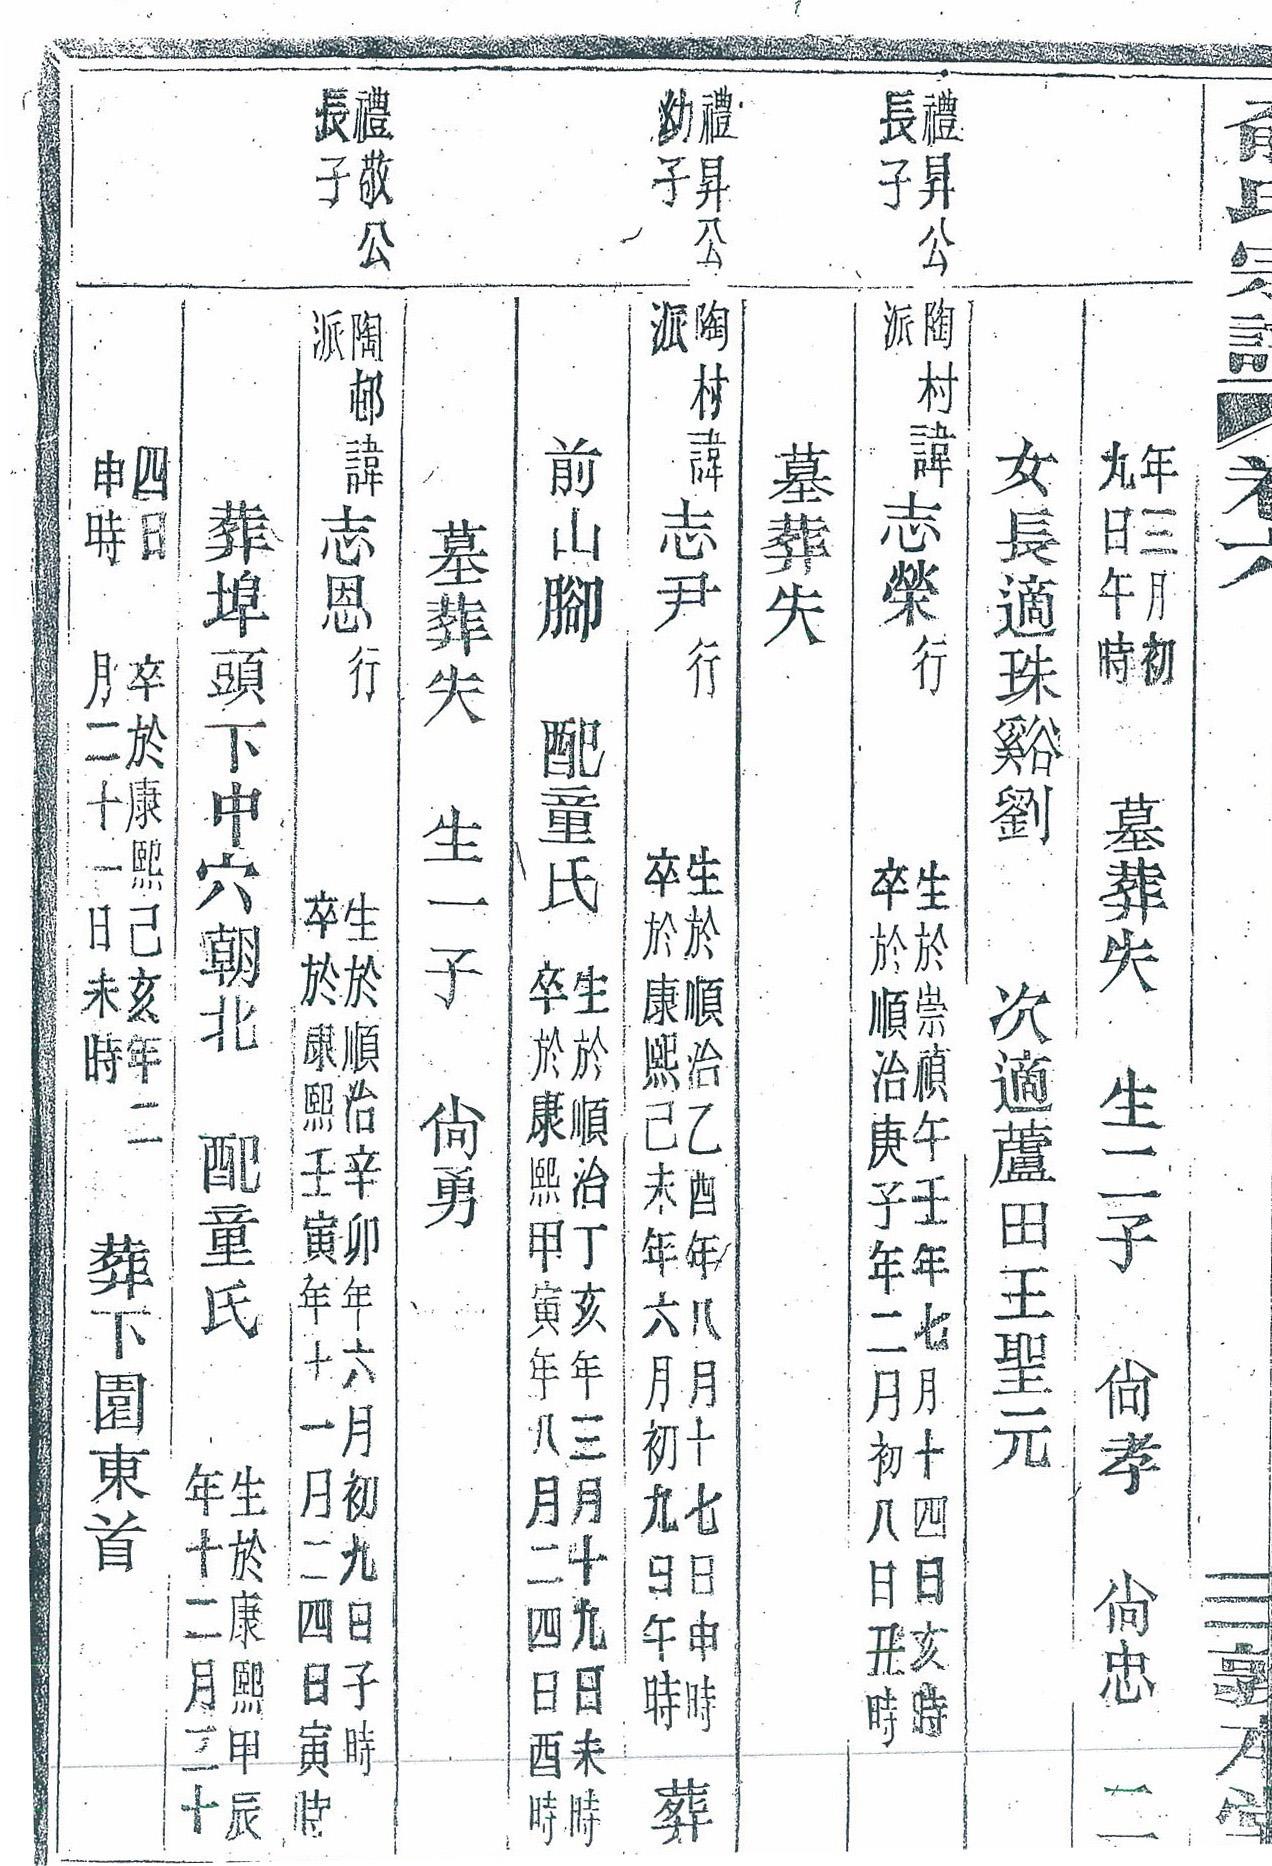 氏宗譜 卷六
年三月初
九日午時 墓葬失 生二子 尙孝 尙忠 二
女長適珠谿劉 次適蘆田王聖元
禮昇公
長子
陶村諱志榮行
派
生於崇禎午壬年七月十四日亥時
卒於順治庚子年二月初八日丑時
墓葬失
禮昇公
幼子
陶村諱志尹行
派
生於順治乙酉年八月十七日申時
卒於康熙己未年六月初九日午時 葬
前山腳 配童氏
生於順治丁亥年三月十九日未時
卒於康熙甲寅年八月二四日酉時
墓葬失 生一子 尙勇
禮敬公
長子
陶邨諱志恩行
派
生於順治辛卯年六月初九日子時
卒於康熙壬寅年十一月二四日寅時
葬埠頭下中穴朝北 配童氏
生於康熙甲辰
年十二月二十
四日
申時
卒於康熙己亥年二
月二十一日未時 葬下園東首